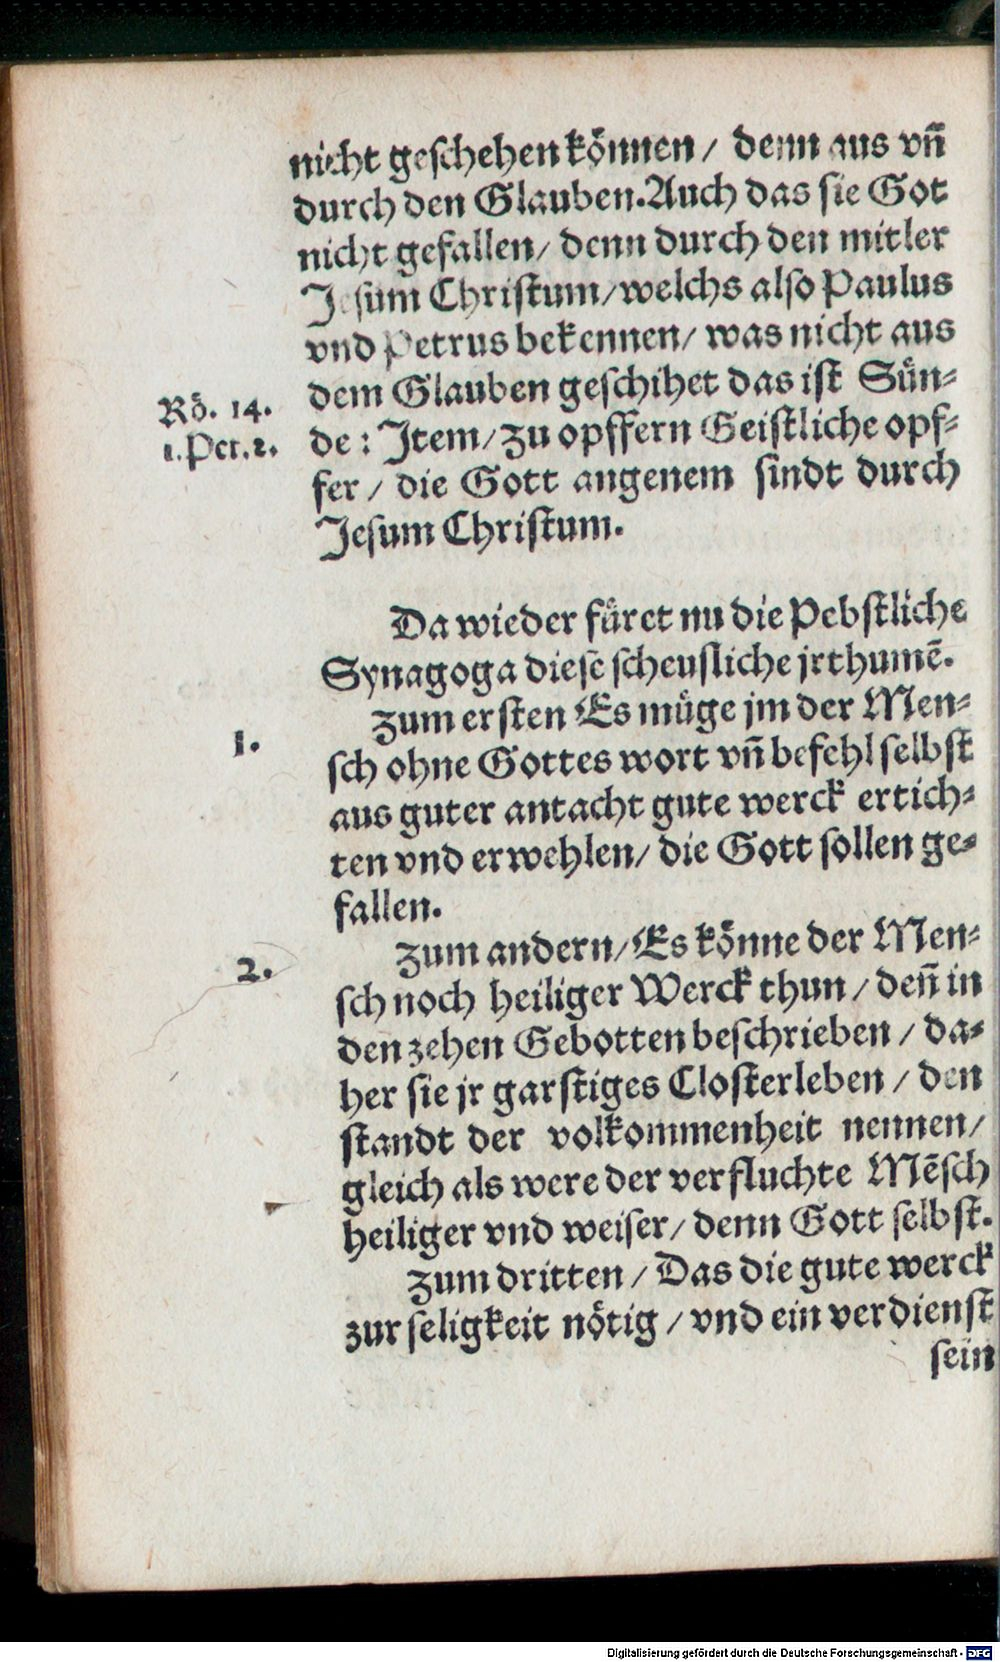 nicht geschehen können / denn aus vñ
durch den Glauben. Auch das sie Got
nicht gefallen / denn durch den mitler
Jesum Christum / welchs also Paulus
vnd Petrus bekennen / was nicht aus
dem Glauben geschihet das ist Sün⸗
Rö. 14.
de : Item / zu opffern Geistliche opf⸗
1. Pet. 2.
fer / die Gott angenem sindt durch
Jesum Christum.
Da wieder füret nu die Pebstliche
Synagoga diese scheusliche jrthumē.
Zum ersten Es müge jm der Men⸗
1.
sch ohne Gottes wort vñ befehl selbst
aus guter antacht gute werck ertich⸗
ten vnd erwehlen / die Gott sollen ge⸗
fallen.
Zum andern / Es könne der Men⸗
2.
sch noch heiliger Werck thun / deñ in
den zehen Gebotten beschrieben / da⸗
her sie jr garstiges Closterleben / den
standt der volkommenheit nennen /
gleich als were der verfluchte Mēsch
heiliger vnd weiser / denn Gott selbst.
Zum dritten / Das die gute werck
zur seligkeit nötig / vnd ein verdienst
sein
Digitalisierung gefördert durch die Deutsche Forschungsgemeinschaft - DFG